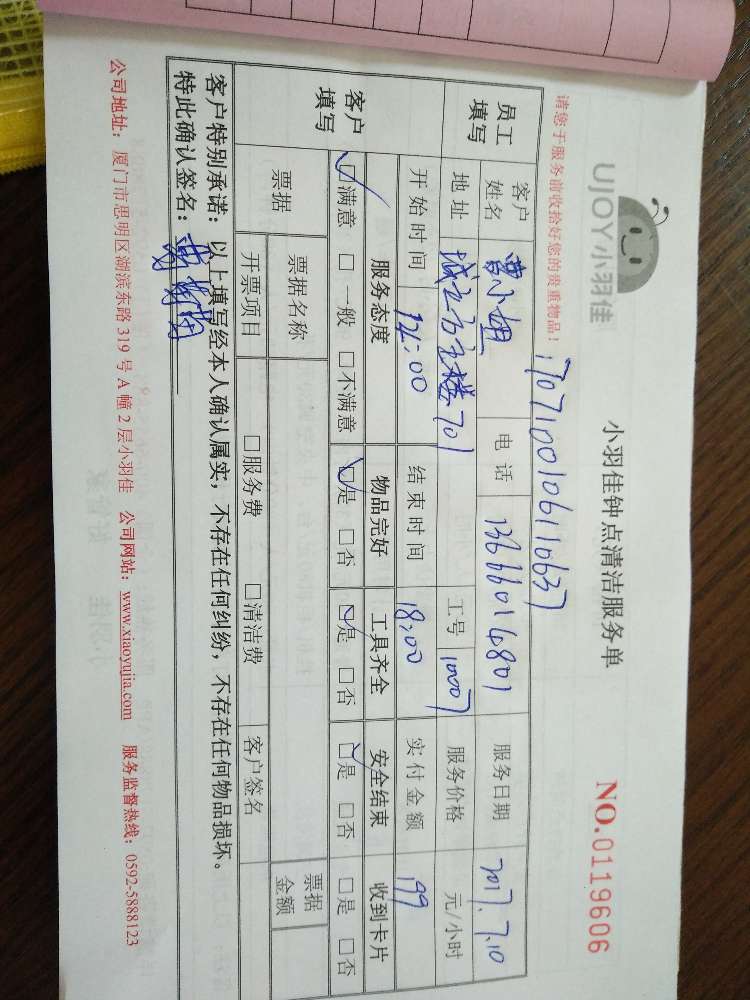 UJOY小羽佳
小羽佳钟点清洁服务单
NO.0119606
请您于服务前收拾好您的贵重物品!
1707100106110637
员工填写 客户姓名 曹小姐 电话 13666014801 服务日期 2017.7.10
地址 701 工号 10007 服务价格 元/小时
开始时间 14:00 结束时间 18:00 实付金额 199
客户填写 服务态度 物品完好 工具齐全 安全结束 收到卡片
☑满意 □一般 □不满意 ☑是 □否 ☑是 □否 ☑是 □否 □是 □否
票据 票据名称 票据金额
开票项目 □服务费 □清洁费 客户签名
客户特别承诺:以上填写经本人确认属实,不存在任何纠纷,不存在任何物品损坏。
特此确认签名:
公司地址:厦门市思明区湖滨东路319号A幢2层小羽佳 公司网站:www.xiaoyujia.com 服务监督热线:0592-5888123